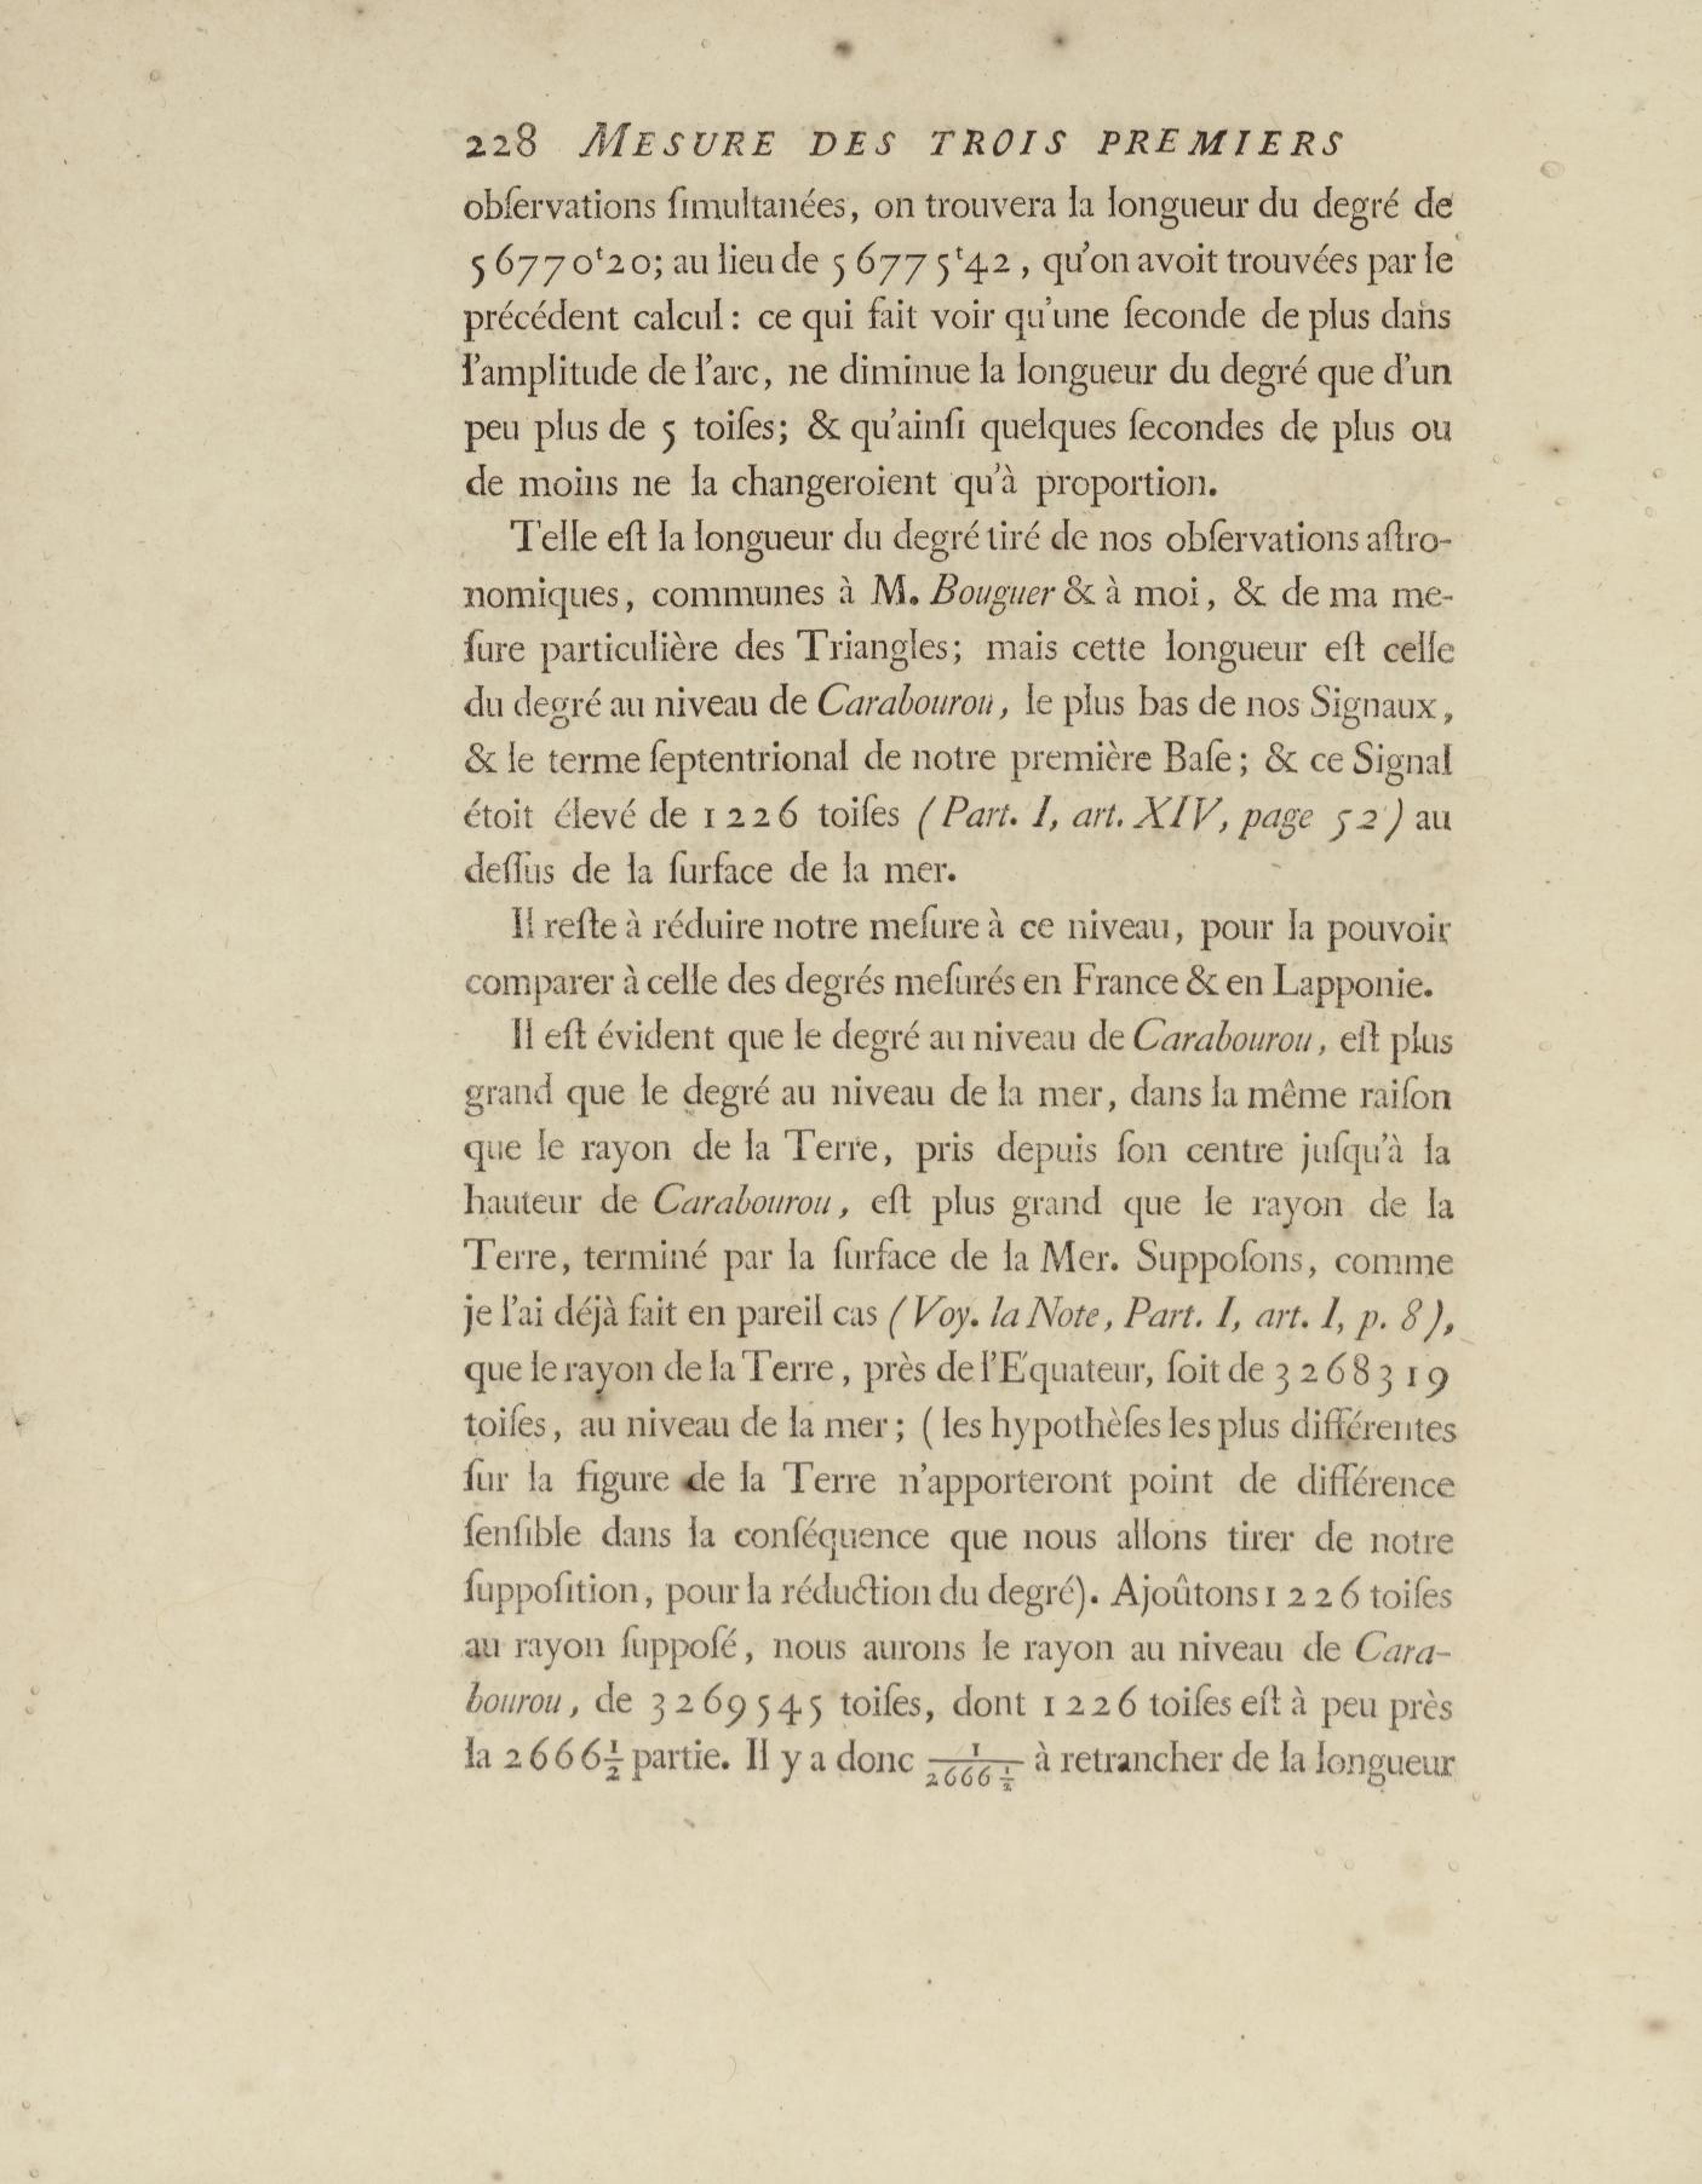 228 MESURE DES TROIS PREMIERS
obſervations ſimultanées, on trouvera la longueur du degré de
56770ᵗ20; au lieu de 56775ᵗ42, qu'on avoit trouvées par le
précédent calcul : ce qui fait voir qu'une ſeconde de plus dans
l'amplitude de l'arc, ne diminue la longueur du degré que d'un
peu plus de 5 toiſes; & qu'ainſi quelques ſecondes de plus ou
de moins ne la changeroient qu'à proportion.
Telle eſt la longueur du degré tiré de nos obſervations aſtro-
nomiques, communes à M. Bouguer & à moi, & de ma me-
ſure particulière des Triangles; mais cette longueur eſt celle
du degré au niveau de Carabourou, le plus bas de nos Signaux,
& le terme ſeptentrional de notre première Baſe; & ce Signal
étoit élevé de 1226 toiſes (Part. I, art. XIV, page 52) au
deſſus de la ſurface de la mer.
Il reſte à réduire notre meſure à ce niveau, pour la pouvoir
comparer à celle des degrés meſurés en France & en Lapponie.
Il eſt évident que le degré au niveau de Carabourou, eſt plus
grand que le degré au niveau de la mer, dans la même raiſon
que le rayon de la Terre, pris depuis ſon centre juſqu'à la
hauteur de Carabourou, eſt plus grand que le rayon de la
Terre, terminé par la ſurface de la Mer. Suppoſons, comme
je l'ai déjà fait en pareil cas (Voy. la Note, Part. I, art. I, p. 8),
que le rayon de la Terre, près de l'Equateur, ſoit de 3268319
toiſes, au niveau de la mer; (les hypothèſes les plus différentes
ſur la figure de la Terre n'apporteront point de différence
ſenſible dans la conſéquence que nous allons tirer de notre
ſuppoſition, pour la réduction du degré). Ajoûtons 1226 toiſes
au rayon ſuppoſé, nous aurons le rayon au niveau de Cara-
bourou, de 3269545 toiſes, dont 1226 toiſes eſt à peu près
la 2666½ partie. Il y a donc 1/2666½ à retrancher de la longueur